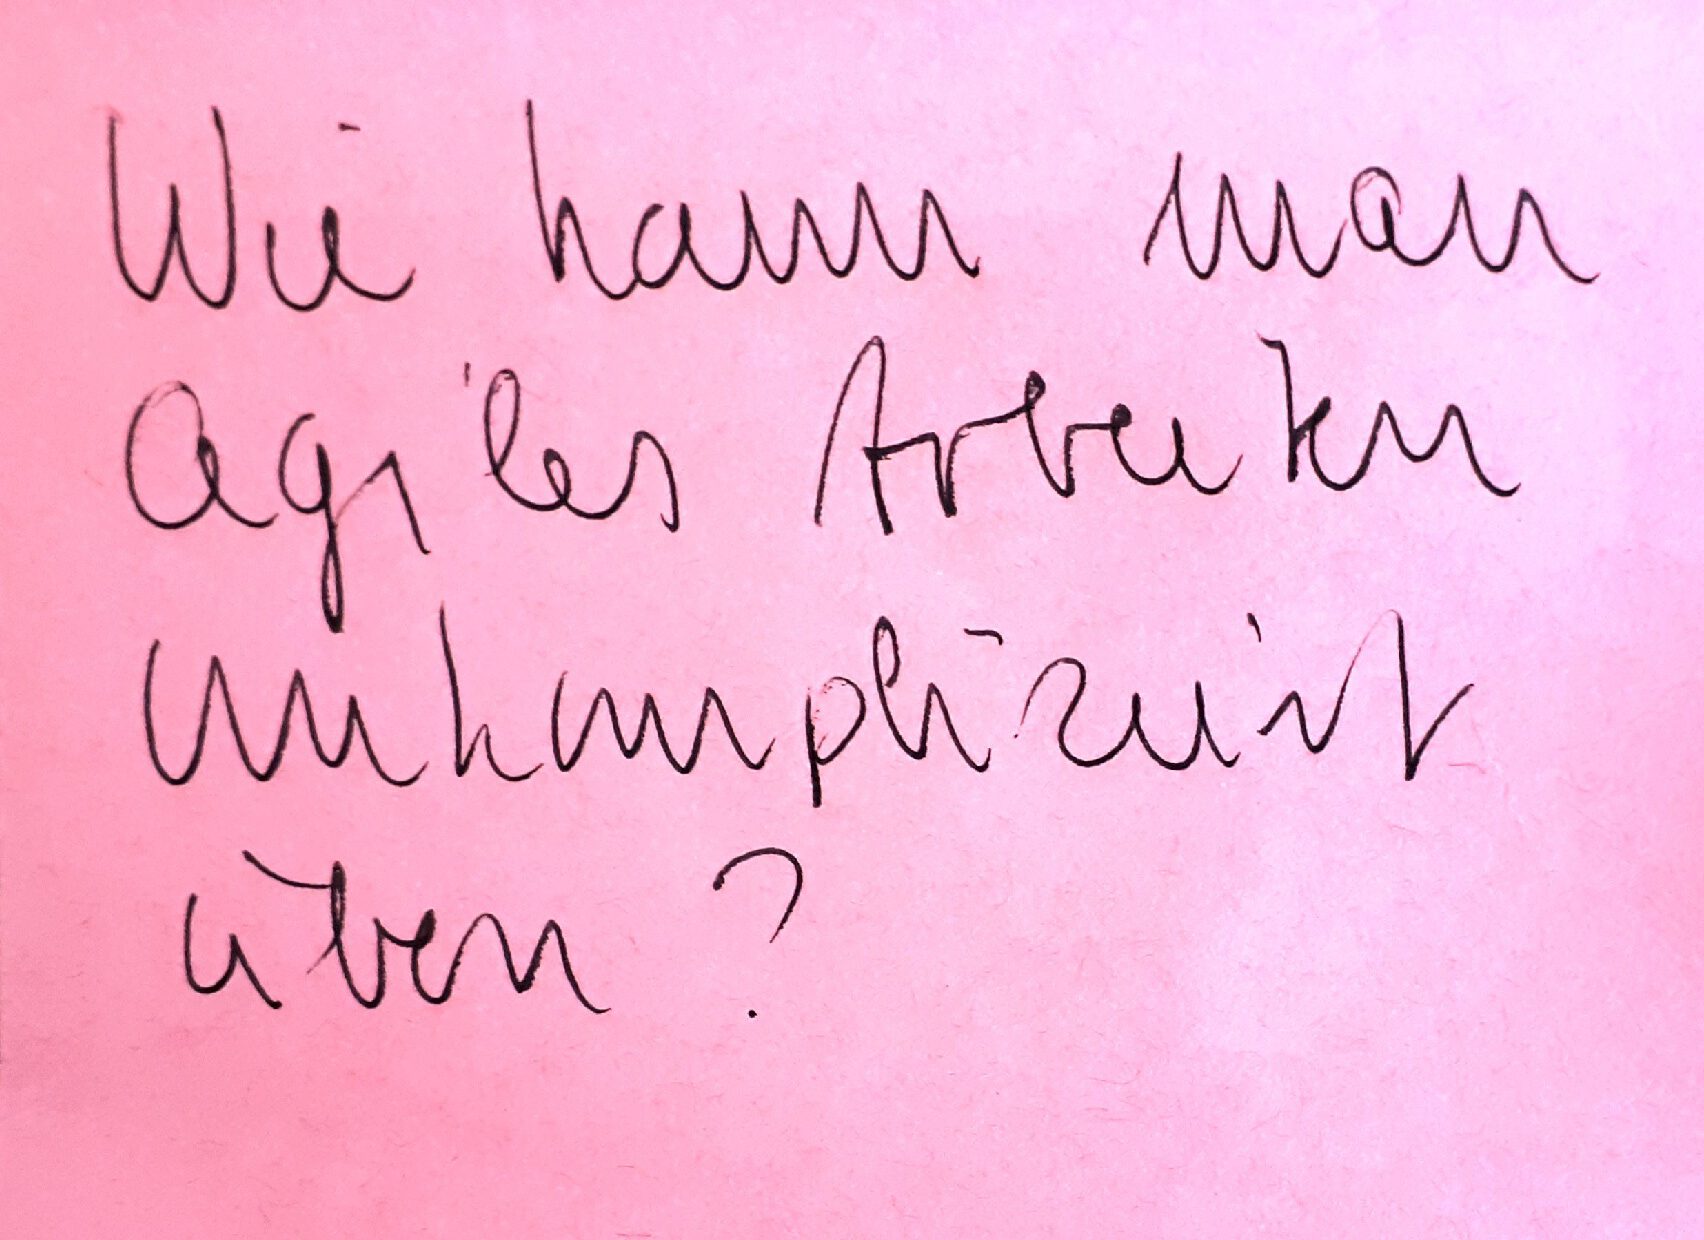 Wie kann man
agiles Arbeiten
unkompliziert
üben?